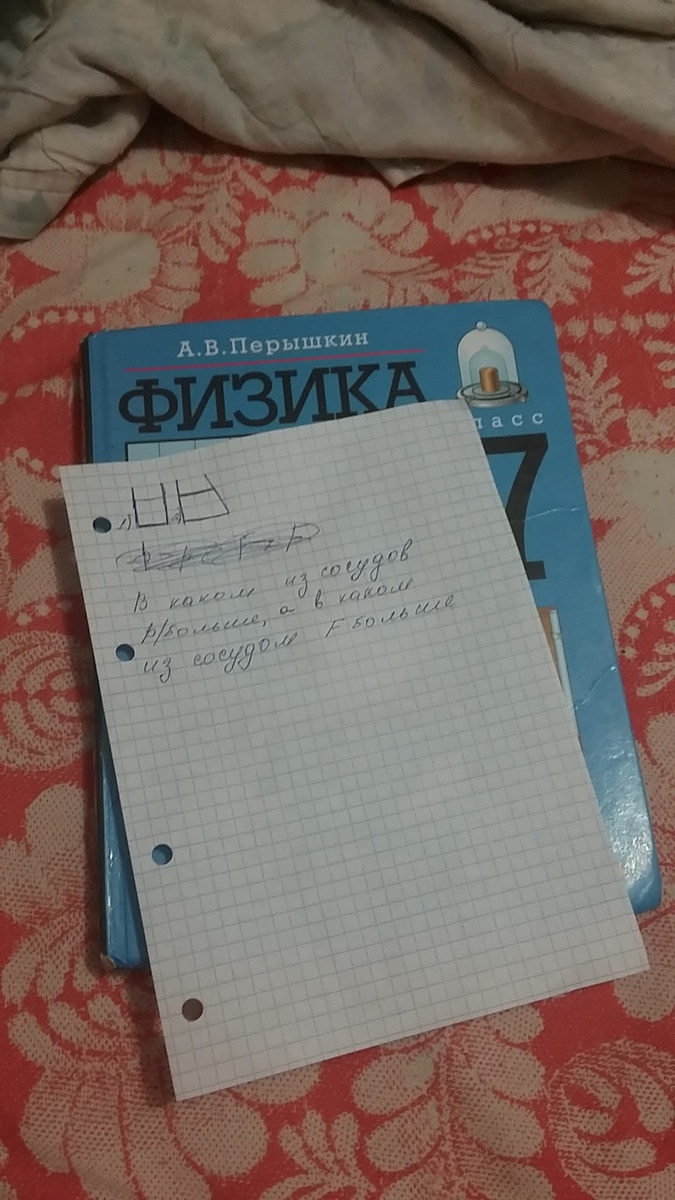 А.В.Перышкин
ФИЗИКА
ласс
7
1)
В каком из сосудов
p/больше, а в каком
из сосудом F больше